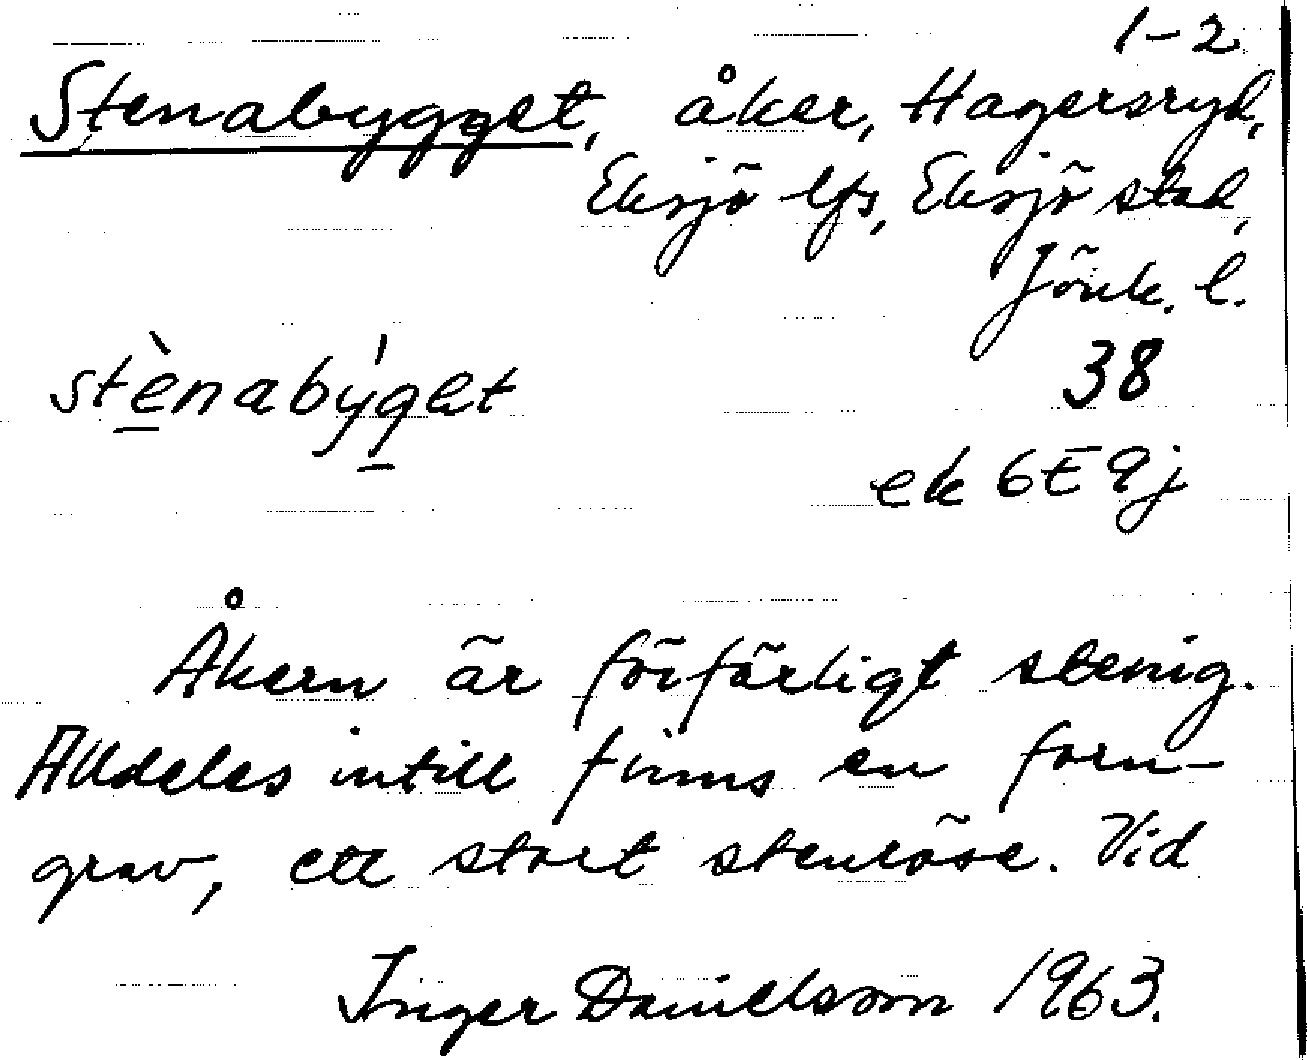 1-2
Stenabygget, åker, Hagersryd,
Eksjö lfs, Eksjö stad,
Jönk. l.
stènabýget
38
ek 6E9j
Åkern är förfärligt stenig.
Alldeles intill finns en forn-
grav, ett stort stenröse. Vid
Inger Danielsson 1963.